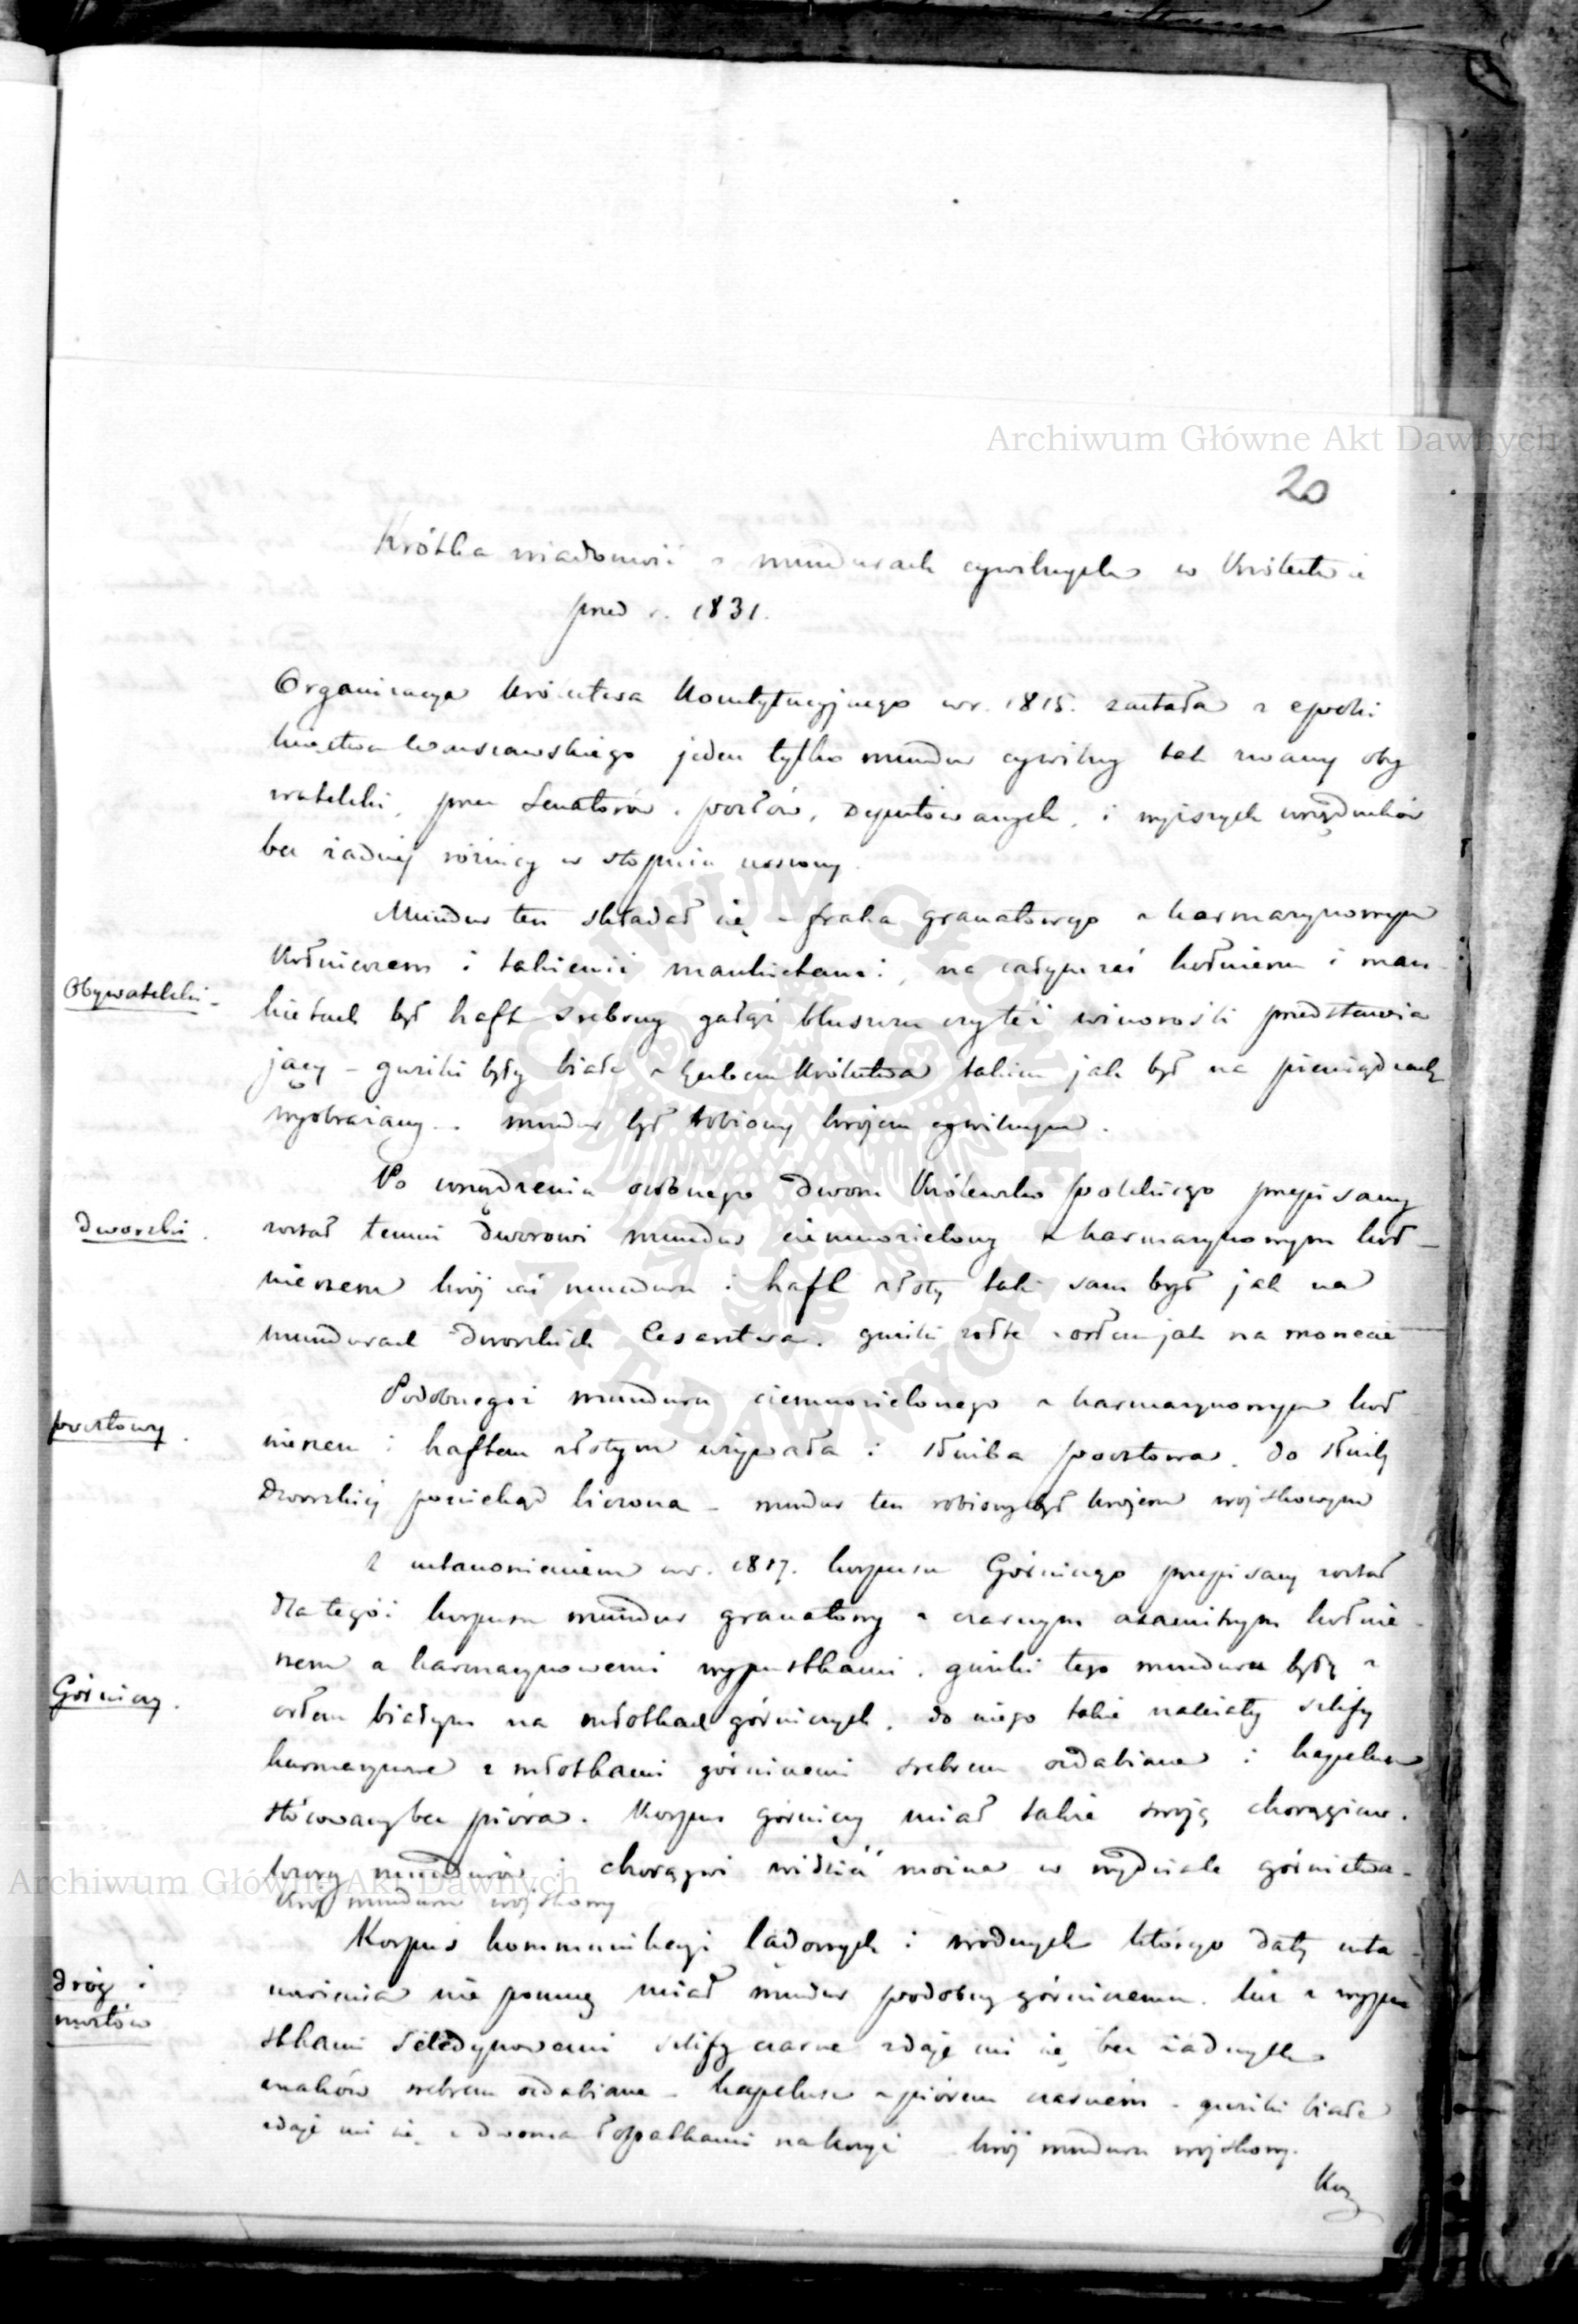 Archiwum Główne Akt Dawnych
20
Krótka wiadomość o mundurach cywilnych w Królestwie
przed r. 1831.
Organizacya Królestwa Konstytucyjnego w r. 1815. zastała z epoki
księstwa Warszawskiego jeden tylko mundur cywilny tak zwany oby
watelski, przez Senatorów, posłów, Deputowanych, i wyższych urzędników
bez żadnéj różnicy w stopniu noszony.
Mundur ten składał się z fraka granatowego z karmazynowym
Kołnierzem i takiemiż mankietami, na całym zaś kołnierzu i man-
Obywatelski -
kietach był haft srebrny gałęź bluszczu czyteż winorośli przedstawia
jący - guziki były białe z herbem Królestwa takim jak był na pieniądzach
wyobrażany -. mundur był robiony krojem cywilnym.
Po urządzeniu osobnego Dworu Królewsko polskiego przepisany
Dworski.
został temu Dworowi mundur ciemnozielony z karmazynowym koł-
nierzem krój zaś munduru i haft złoty taki sam był jak na
mundurach Dworskich Cesarstwa. guziki żółte z orłem jak na monecie
Podobnegoż munduru ciemnozielonego z karmazynowym koł
pocztowy.
nierzem i haftem złotym używała i służba pocztowa. do służby
Dworskiéj poniekąd liczona - mundur ten robiony był krojem wojskowym
Z ustanowieniem w r. 1817. korpusu Górniczego przepisany został
dla tegóż korpusu mundur granatowy z czarnym axamitnym kołnie-
rzem z karmazynowemi wypustkami. guziki tego munduru były z
Górniczy.
orłem białym na młotkach górniczych. do niego także należały szlify
karmazynowe z młotkami górniczemi srebrem ozdabiane i kapelusz
stósowany bez pióra. Korpus górniczy miał także swoją chorągiew.
wzory mundurów i chorągwi widzieć można w wydziale górnictwa.
Archiwum Główne Akt Dawnych
Krój munduru wojskowy
Korpus kommunikacyi lądowych i wodnych którego daty usta-
dróg i
nowienia nie pomnę miał mundur podobny górniczemu. lecz z wypu
mostów
stkami Seledynowemi szlify czarne zdaje mi się bez żadnych
znaków srebrem ozdabiane - kapelusz z piórem czarném - guziki białe
zdaje mi się z dwoma łopatkami na krzyż krój munduru wojskowy.